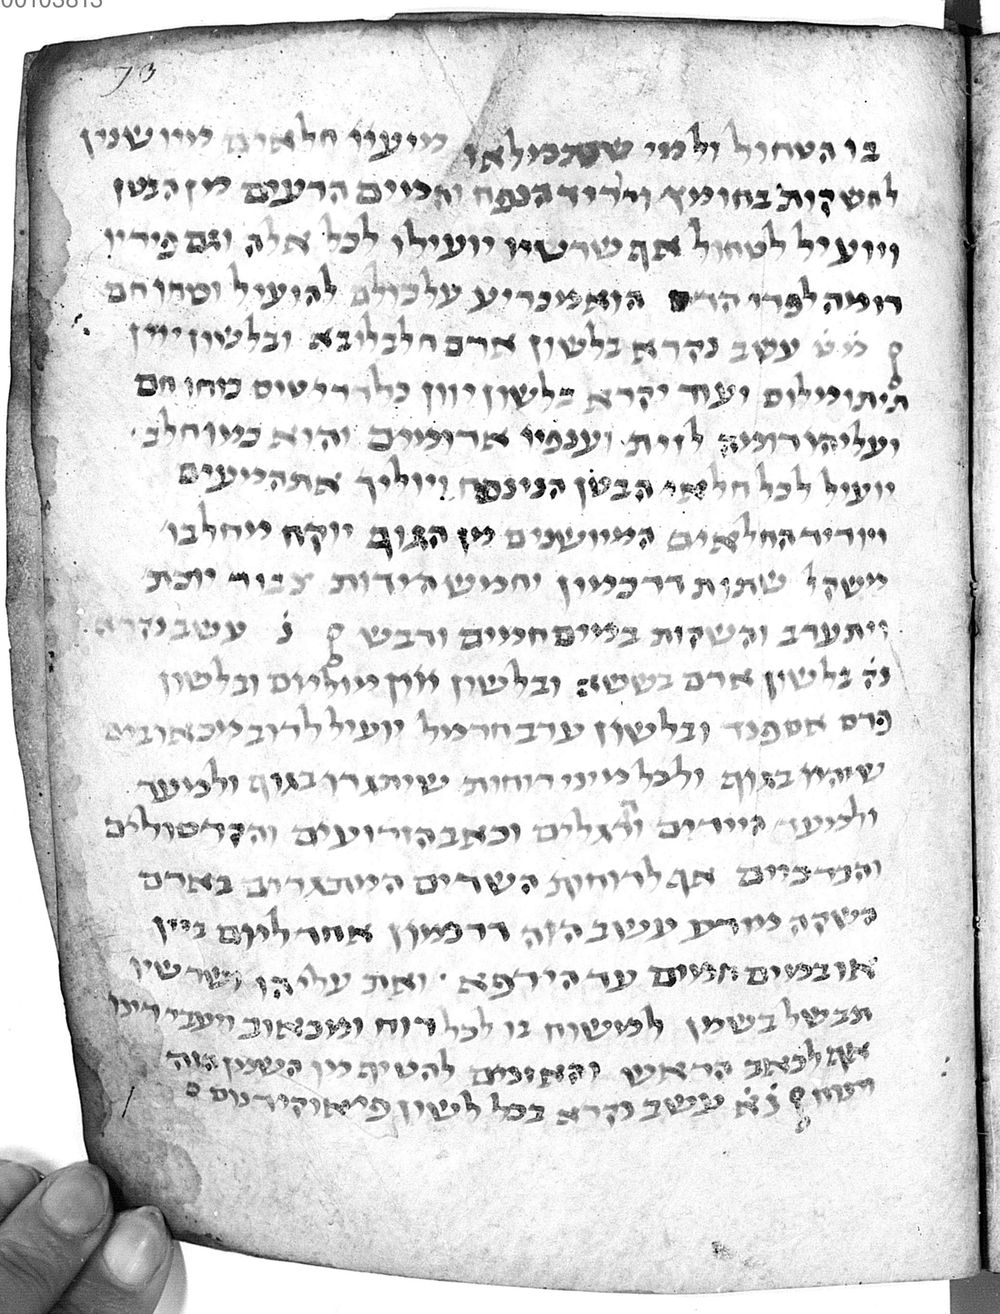 00103813
73
בו הטחול ולמי שנתמלאו מיעיו חלאים מיושנין
להשקות בחומץ ויוריד הנפח והמים הרעים מן הבטן
ויועיל לטחול אף שרשיו יועילו לכל אלה וגם פיריו
דומה לפרי הדס הוא מכריע על כולם להועיל וטחו חם
מ̇ט̇ עשב נקרא בלשון ארם חלבליבא ובלשון יוון
תיתומילוס ועוד יקרא בלשון יוון כוחו חם
ועליהו דומה לזית וענפיו אדומים והוא כמו חלב
יועיל לכל חלאי הבטן ויוליך את המיעים
ויוריד החלאים המיושנים מן הגוף יוקח מחלבו
משקל שתות דרכמון וחמש הידות צבור יוכת
ויתערב והשקות במים חמים ודבש נ̇ עשב נקרא
בלשון ארם בששא ובלשון יוון מולים ובלשון
פרס אספנד ובלשון ערב חרמל יועיל לרוב מכאובים
שיהיו בגוף ולכל מיני רוחות שיתגרו בגוף ולמעד
ולמעד הידים והרגלים וכאב הזרועים והקרסולים
והברכיים אף לרוחות השדים המתגרות בארם
השקה מזרע עשב הזה דרכמון אחד ליום ביין
או במים חמים עד הירפא ואת עליהו ושרשיו
תבשל בשמן למשוח בו לכל רוח ומכאוב
אף לכאב הראש והאזנים להטיף מן השמן הזה
נ̇א̇ עשב נקרא בכל לשון